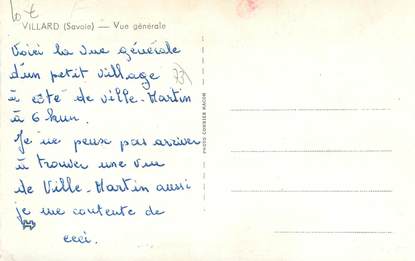 10 €
VILLARD (Savoie) — Vue générale
Voici la vue générale
d'un petit village
73
à côté de ville-Martin
à 6 km.
Je ne peux pas arriver
à trouver une vue
de Ville-Martin aussi
je me contente de
ceci.
PHOTO COMBIER MACON